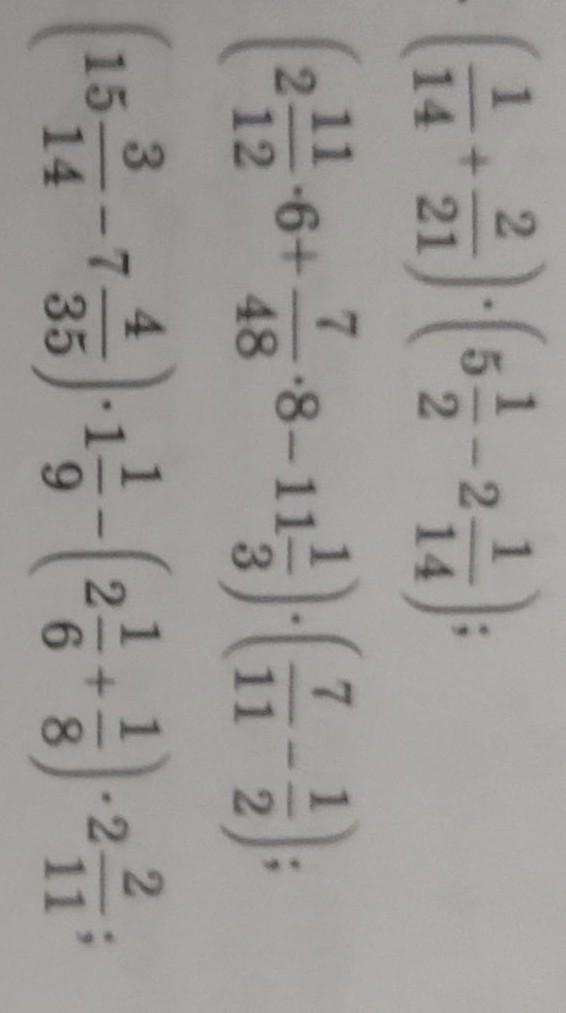 (1/14 + 2/21) · (5 1/2 − 2 1/14);
(2 11/12 · 6 + 7/48 · 8 − 11 1/3) · (7/11 − 1/2);
(15 3/14 − 7 4/35) · 1 1/9 − (2 1/6 + 1/8) · 2 2/11;